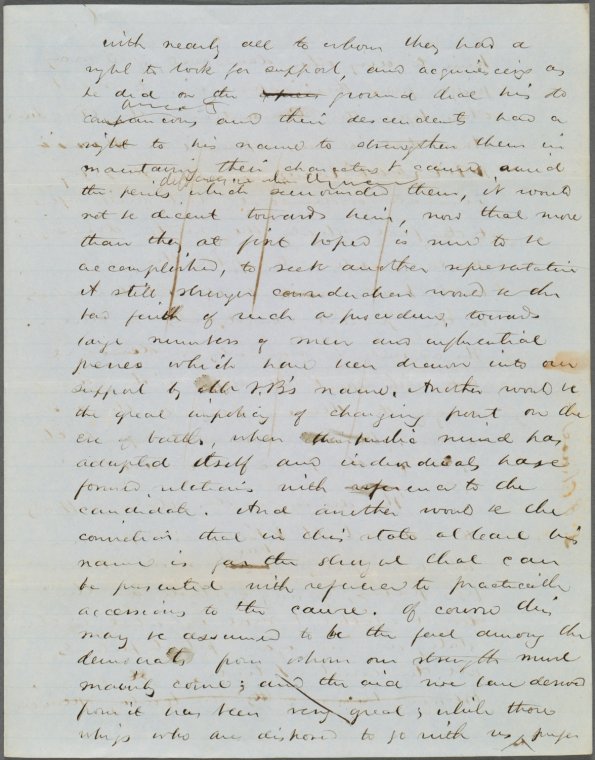 with nearly all to whom they had a
right to look for support, and acquiescing as
he did on the ground that his
and their descendents had a
right to his name to strengthen them in
maintaing their characters & cause amid
the perils which surrounded them, it would
not be decent towards him, now that more
than they at first hoped is sure to be
accomplished, to seek another representative
A still stronger consideration would be the
bad faith of such a proceeding towards
large numbers of men and influential
presses which have been drawn into our
support by Mr V.B's name. Another would be
the great impolicy of changing front on the
eve of battle, when the public mind has
adapted itself and individuals have
formed relations with reference to the
candidate. And another would be the
conviction that in this state at least his
name is far the strongest that can
be presented with reference to practicable
accessions to the cause. Of course this
may be assumed to be the fact among the
democrats from whom our strength must
mainly come; and the aid we have derived
from it has been very great; while those
whigs who are disposed to go with us prefer